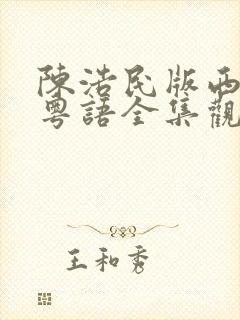 陳浩民版西
粵語全集觀
王和秀